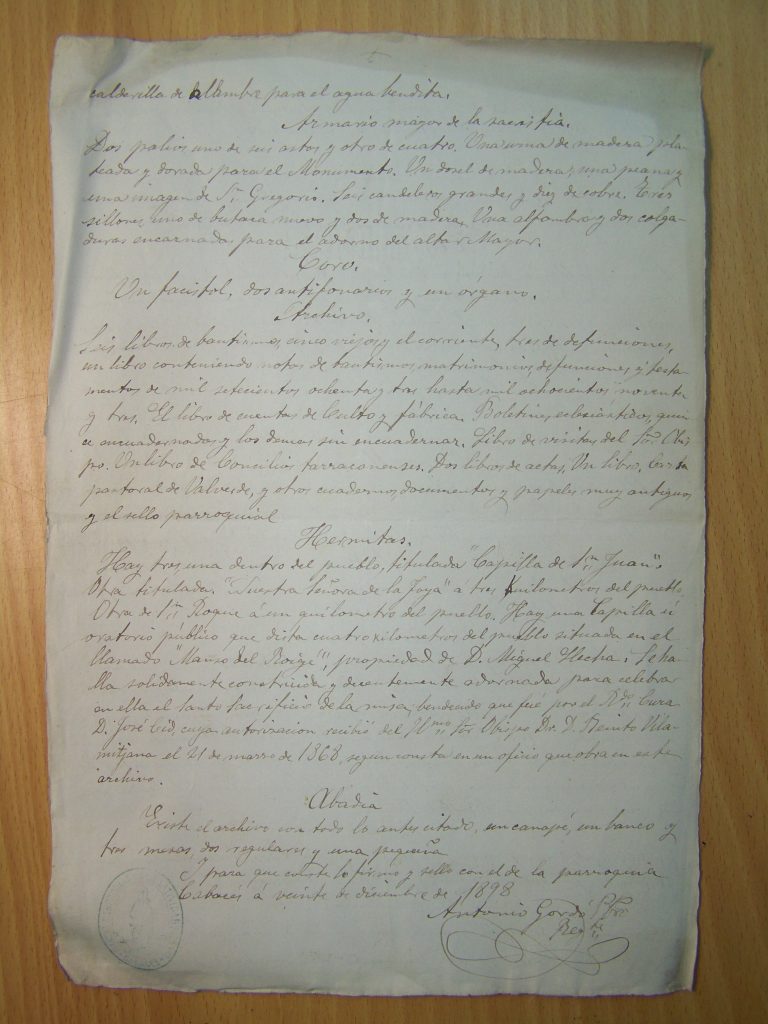 5
calderilla de alambre para el agua bendita.
Armario mayor de la sacristia.
Dos palios uno de seis astos y otro de cuatro. Una urna de madera pla-
teada y dorada para el Monumento. Un dosel de madera; una peana y
una imagen de Sn. Gregorio. Seis candeleros grandes y diez de cobre. Tres
sillones, uno de butaca nuevo y dos de madera. Una alfombra y dos colga-
duras encarnadas para el adorno del altar Mayor.
Coro.
Un facistol, dos antifonarios y un órgano.
Archivo.
Seis libros de bautismos, cinco viejos y el corriente, tres de defunciones,
un libro conteniendo notas de bautismos, matrimonios, defunciones y testa-
mentos de mil setecientos ochenta y tres hasta mil ochocientos noventa
y tres. El libro de cuentas de Culto y fábrica. Boletines eclesiásticos, quin-
ce encuadernados y los demas sin encuadernar. Libro de visitas del Sor. Obis-
po. Un libro de Concilios tarraconenses. Dos libros de actas. Un libro. Carta
pastoral de Valverde, y otros cuadernos, documentos y papeles muy antiguos
y el sello parroquial
Hermitas.
Hay tres, una dentro del pueblo, titulada "Capilla de Sn. Juan".
Otra titulada "Nuestra Señora de la Foya" á tres kilometros del pueblo.
Otra de Sn. Roque á un quilometro del pueblo. Hay una Capilla ú
oratorio publico que dista cuatro kilometros del pueblo situada en el
llamado "Manso del Roigé", propiedad de D. Miguel Flecha. Se ha-
lla solidamente construida y decentemente adornada para celebrar
en ella el Santo Sacrificio de la misa; bendecido que fué por el Rdo. Cura
D. José Cid, cuya autorizacion recibió del Ilmo. Sor. Obispo Dr. D. Benito Vila-
mitjana el 21 de marzo de 1868, segun consta en un oficio que obra en este
archivo.
Abadia
Existe el archivo con todo lo antes citado, un canapé, un banco y
tres mesas, dos regulares y una pequeña
Y para que conste lo firmo y sello con el de la parroquia
Cabacés á veinte de diciembre de 1898
Antonio Gordó Pbro.
Regte.